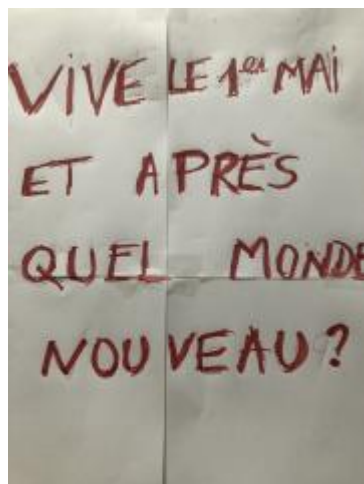 VIVE LE 1er MAI
ET APRÈS
QUEL MONDE
NOUVEAU ?